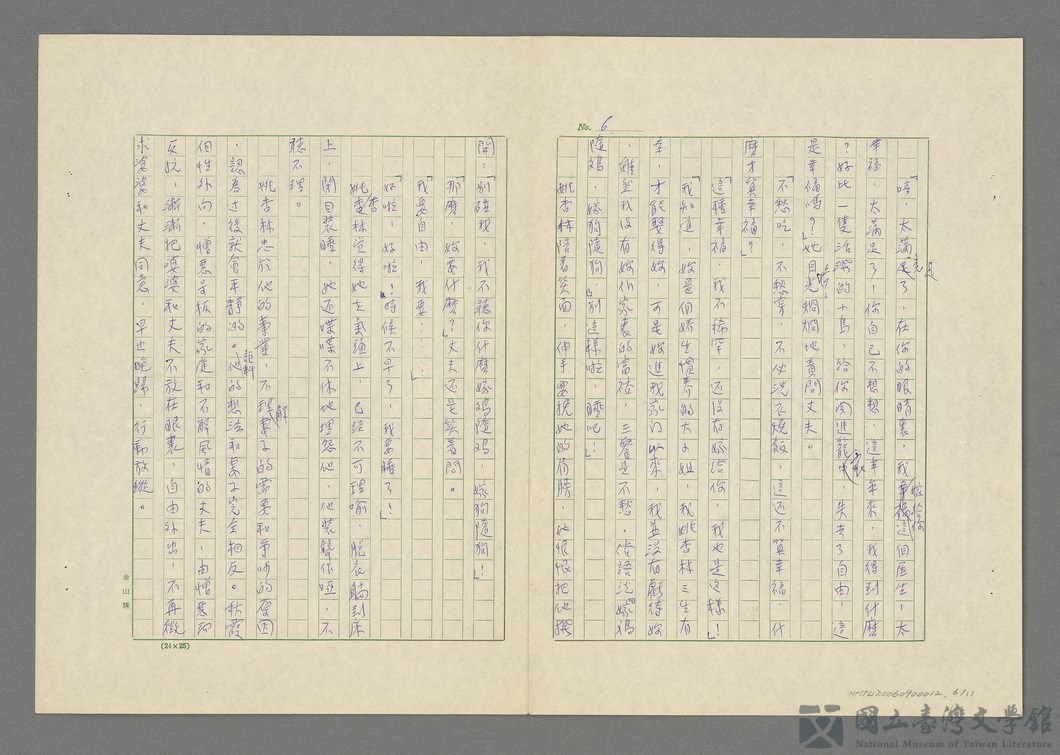 No. 6
「唔，太滿足了，在你的眼睛裏，我嫁給你這個醫生，太
幸福，太滿足了！你自己不想想，這半年來，我得到什麼
？好比一隻活潑的小鳥，給你関進籠裏，失去了自由，這
是幸福嗎？」她目光烱烱地責問丈夫。
「不愁吃，不愁穿，不必洗衣燒飯，這還不算幸福，什
麼才算幸福？」
「這種幸福，我不稀罕，還沒有嫁給你，我也是這樣！」
「我知道，妳是個嬌生慣養的大小姐，我姚杏林三生有
幸，才能娶得妳，可是妳進我家門以來，我並沒有虧待妳
，雖然我沒有妳們家裏的富裕，三餐是不愁，俗語說『嫁鷄
隨鷄，嫁狗隨狗』別這樣啦，睡吧！」
姚杏林陪着笑面，伸手要挽她的肩膀，她恨恨把他撥
開：「別碰我，我不聽你什麼嫁鷄隨鷄，嫁狗隨狗！」
「那麼，妳要什麼？」丈夫还是笑着問。
「我要自由，我要……」
「好啦，好啦！時候不早了，我要睡了！」
姚杏林覚得她在氣頭上，已經不可理喻，脫衣躺到床
上，閉目裝睡，她还喋喋不休地埋怨他，他裝聾作啞，不
聽不理。
姚杏林忠於他的事業，不理解妻子的需要和爭吵的原因
，認為过後就會平靜的。詎料他的想法和妻子完全相反。秋霞
個性外向，憎惡呆板的家庭和不解風情的丈夫，由憎惡而
反抗，漸漸把婆婆和丈夫不放在眼裏，自由外出，不再徵
求婆婆和丈夫同意，早出晚歸，行動放縱。
金山牌
(24×25)
NMTL20060900012, 6/11
國立臺灣文學館
National Museum of Taiwan Literature